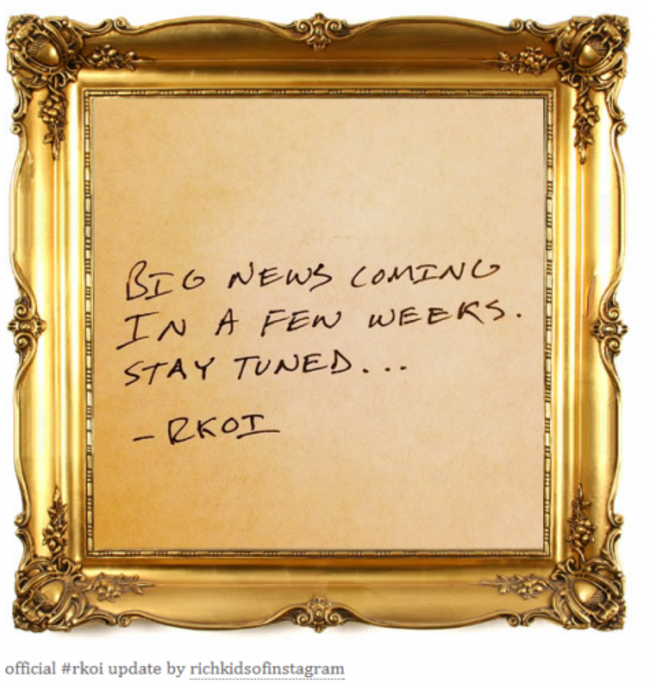 BIG NEWS COMING
IN A FEW WEEKS.
STAY TUNED...
- RKOI
official #rkoi update by richkidsofinstagram